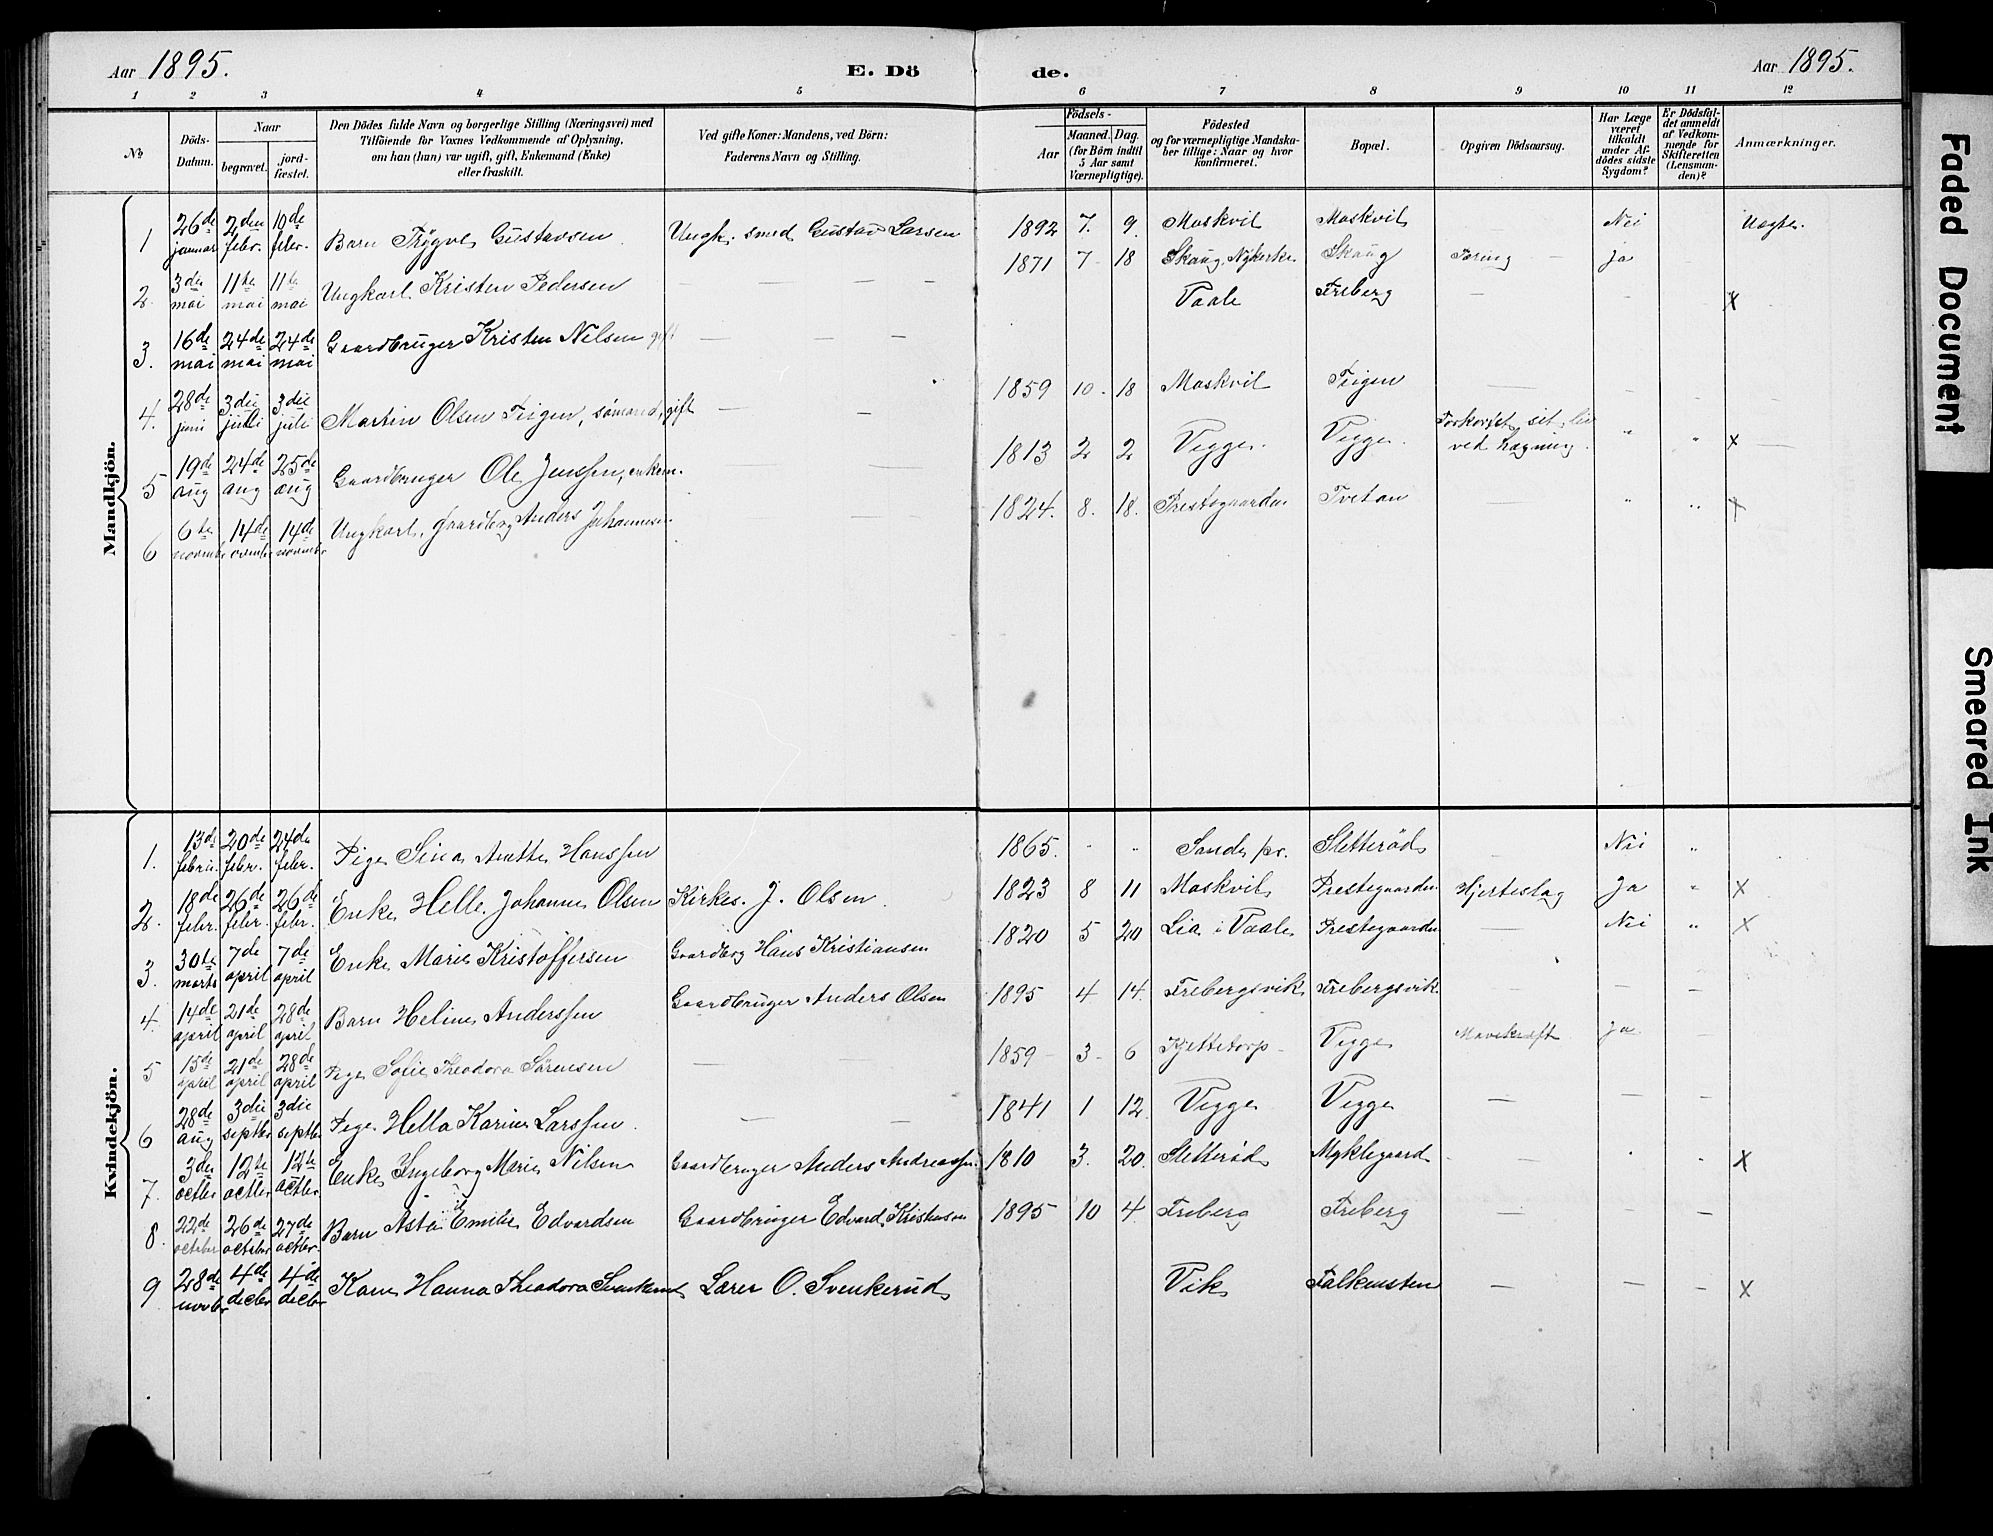 Aar 1895.
E. Dö
de.
Aar 1895.
1 2 3 4 5 6 7 8 9 10 11 12
No
Döds-
Datum.
Naar
begravet.
jord-
fæstet.
Den Dödes fulde Navn og borgerlige Stilling (Næringsvei) med
Tilföiende for Voxnes Vedkommende af Oplysning,
om han (hun) var ugift, gift, Enkemand (Enke)
eller fraskilt.
Ved gifte Koner: Mandens, ved Börn:
Faderens Navn og Stilling.
Födsels-
Aar
Maaned. Dag.
(for Börn indtil
5 Aar samt
Værnepligtige).
Födested
og for værnepligtige Mandska-
ber tillige: Naar og hvor
konfirmeret.
Bopæl.
Opgiven Dödsaarsag.
Har Læge
været
tilkaldt
under Af-
dödes sidste
Sygdom?
Er Dödsfal-
det anmeldt
af Vedkom-
mende for
Skifteretten
(Lensman-
den)?
Anmærkninger.
Mandkjön.
1 26de januar 2den febr. 10de febr. Barn Trygve Gustavsen Ungk. smed Gustav Larsen 1892 7. 9. Moskvil Moskvil Nei Uegte.
2. 3die mai 11te mai 11te mai Ungkarl Kristen Pedersen — — — 1871 7 18 Skaug, Nykirke Skaug Tæring — ja
3. 16de mai 24de mai 24de mai Gaardbruger Kristen Nilsen gift — — — Vaale Freberg — - - x
4. 28de juni 3die juli 3die juli Martin Olsen Teigen, sömand, gift — — 1859 10 - 18 Moskvil Teigen — - -
5 19de aug 24de aug 25de aug Gaardbruger Ole Jenssen, enkem. — — 1813 2 2 Vegge. Vegge. Forkortet sit liv ved Hægning. " " x —
6 6te november 14de november 14de november Ungkarl, gaardbrg Anders Johannesen — — 1824. 8. 18. Prestegaarden Tvetan — " " x
Kvindekjön.
1. 13de febru. 20de febr. 24de febr. Pige Sina Anette Hanssen 1865. " " Sande pr. Sletteröd — Nei "
2. 18de febr. 26de febr. 26de febr. Enke Helle Johanne Olsen Kirkes. J. Olsen. 1823 8 11 Moskvil Prestegaarden Hjerteslag Ja " x
3. 30te marts 7de april 7de april Enke Marie Kristoffersen Gaardbrg Hans Kristiansen 1820 5 20 Lia i Vaale Prestegaarden — Nei " x
4. 14de april 21de april 28de april Barn Heline Anderssen Gaardbruger Anders Olsen 1895 4 14. Frebergsvik Frebergsvik. — — —
5 15de april 21de april 28de april Pige Sofie Theodora Sörensen — — 1859 - 3 - 6 Kjettetorp - Vegge Mavekræft Ja —
6 28de aug 3die septbr 3die septbr Pige Hella Karine Larssen. — — 1841 1 12. Vegge Vegge — — —
7. 3die octbr 12te octbr 12te octbr Enke Ingeborg Marie Nilsen Gaardbruger Anders Andreassen. 1810 3. 20. Sletteröd Myklegaard - - - x
8. 22de october 26de october 27de octbr. Barn Asta Emilie Edvardsen Gaardbruger Edvard Kristensen 1895 10 4. Freberg Freberg — — —
9 28de novbr 4de decbr 4de decbr Kone Hanna Theodora Svenkerud Lærer O. Svenkerud Vik Falkensten — — — x
Faded Document
Smeared Ink